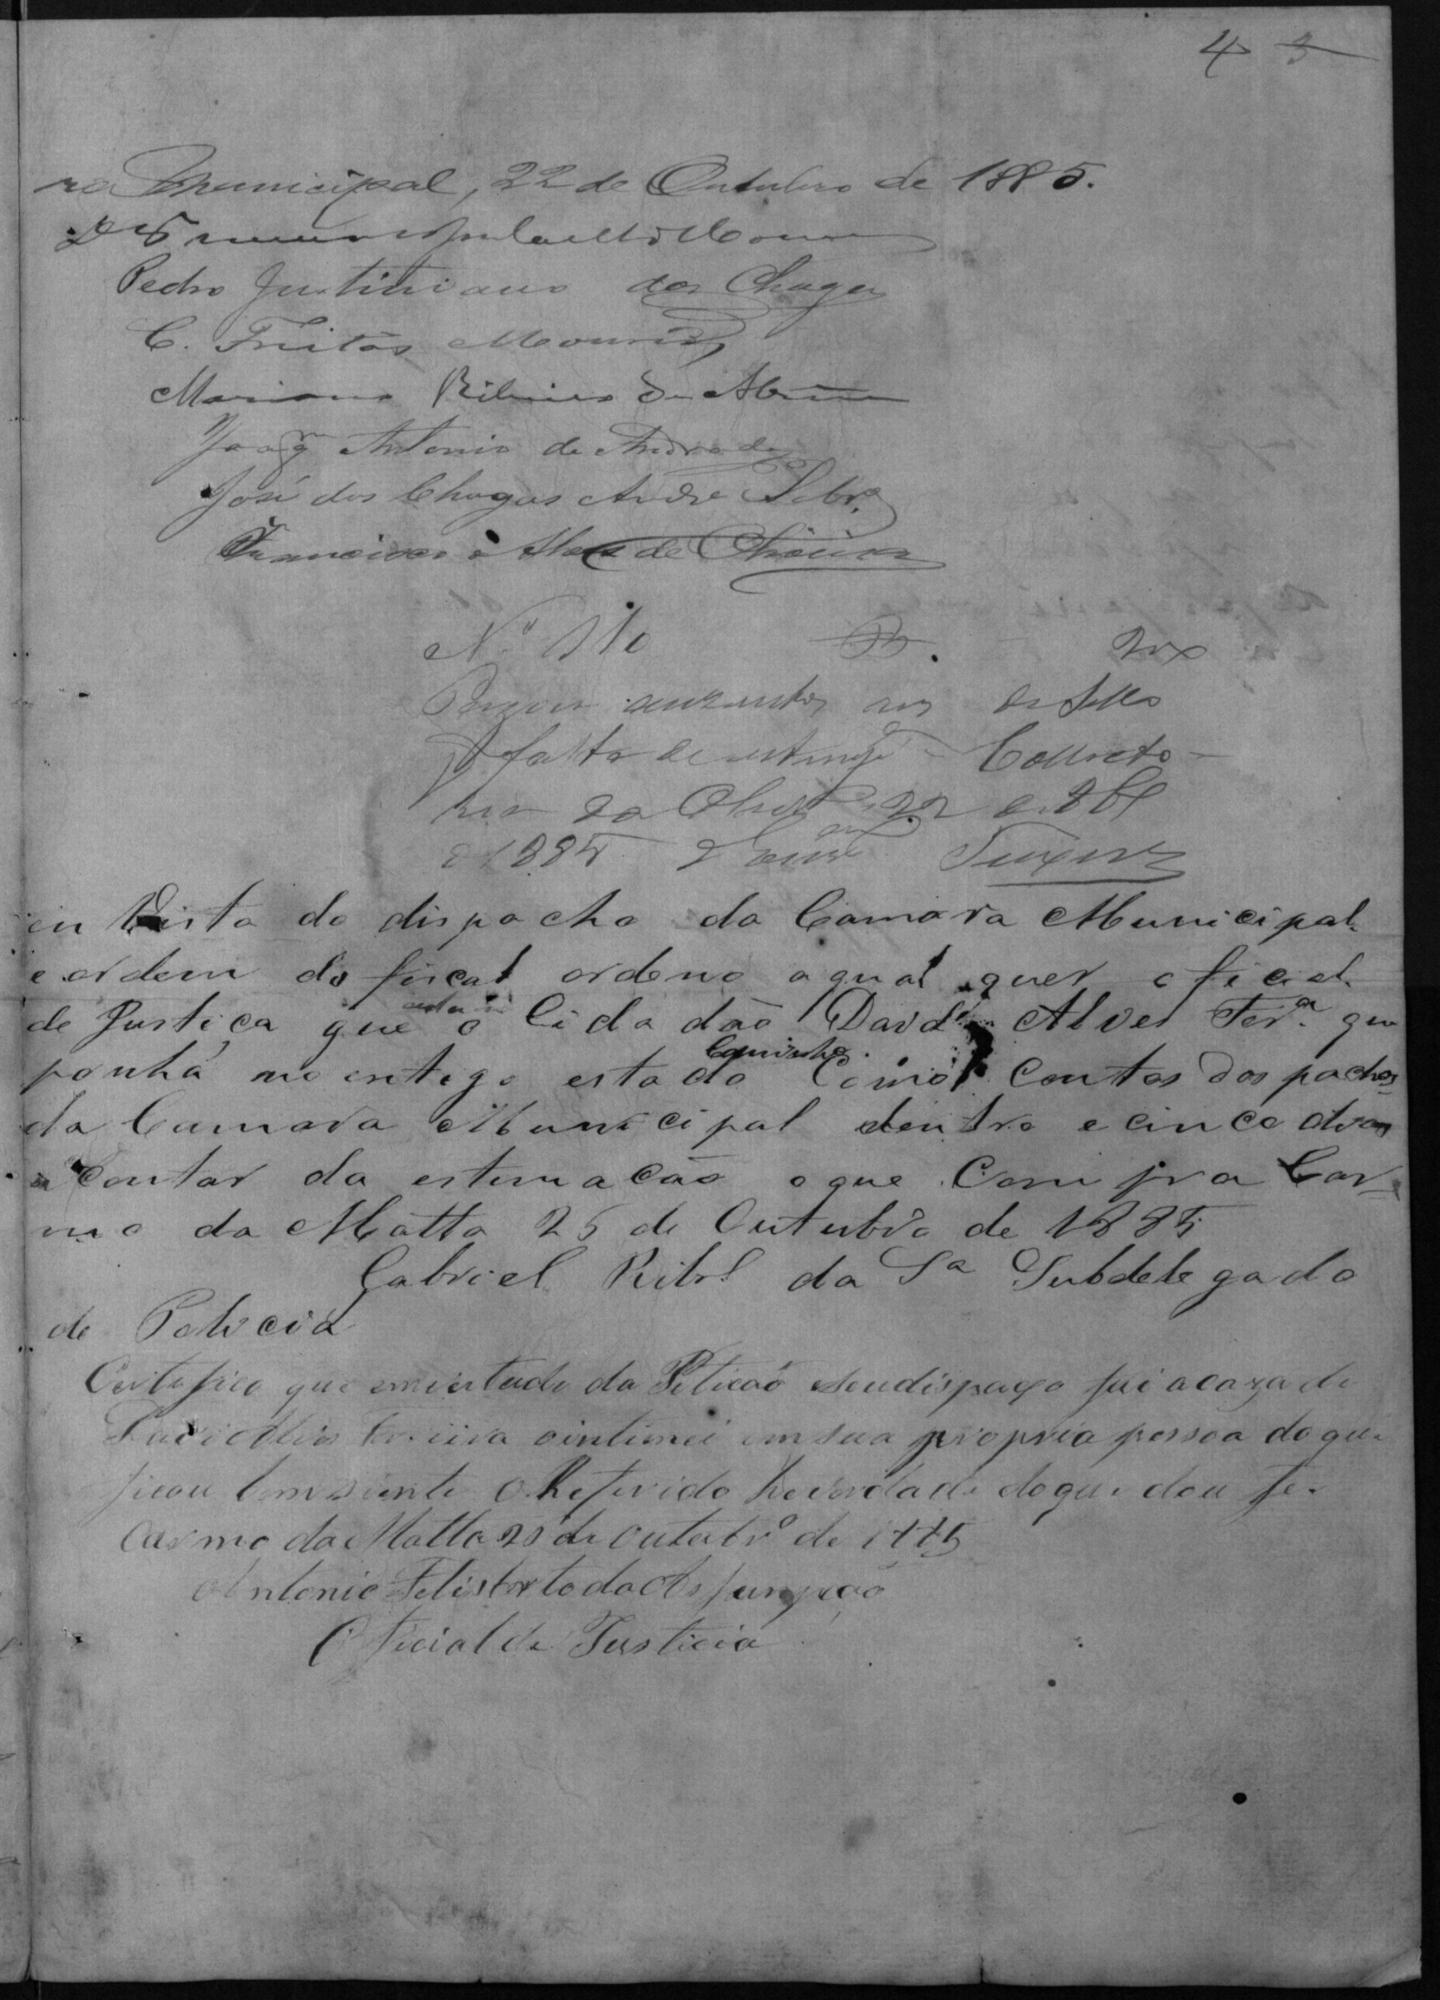 4 3
ra Municipal, 22 de Outubro de 1885.
Pedro Justiniano das Chagas
C. Freitas Mourão
Mariano Ribeiro de Abreu
Joaqm Antonio de Andrade
José das Chagas Andre Sobro
Francisco Alves de Oliveira
No 110 200
Pagou duzentos reis de sello
p falta de estampa Collecto-
ria da 22 de
de 1885
em Vista do dispacho da Camara Municipal
e ordem do fiscal ordeno a qual quer oficial
de Justiça que o Cidadão David Alves Ferra que
ponha no antigo estado Caminho Como Contas dos pachos
da Camara Municipal dentro e cinco dias
a contar da estimacão o que Compra Car-
mo da Matta 25 de Outubro de 1885
Gabriel Ribro da Sa Subdelegado
de Policia
Certefico que emvertude da Peticaõ eseudispaxo fui acaza de
David Alves Ferreira eintimei emsua propria pessoa do que
ficou bemsiente O Referido heverdade doque dou fe.
Carmo da Matta 28 de Outubro de 1885
Antonio Felisberto da Asumpção
Oficial de Justicia